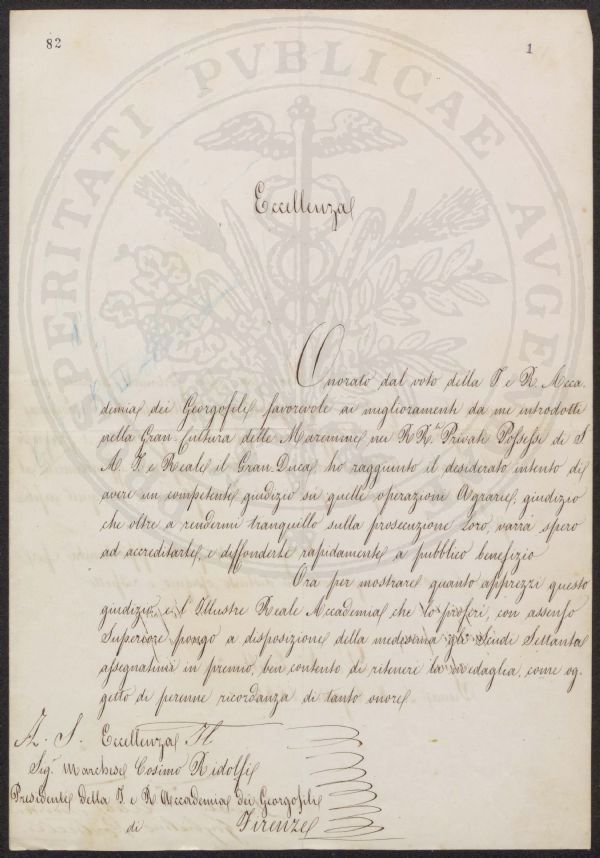 82
1
PROSPERITATI PVBLICAE AVGENDAE
Eccellenza
Onorato dal voto della I e R. Acca-
demia dei Georgofili favorevole ai miglioramenti da me introdotti
nella Gran-Cultura delle Maremme nei RR.li Privati Possessi di S
M. I. e Reale il Gran-Duca, ho raggiunto il desiderato intento di
avere un competente giudizio su quelle operazioni Agrarie, giudizio
che oltre a rendermi tranquillo sulla prosecuzione Loro, varrà spero
ad accreditarle, e diffonderle rapidamente a pubblico benefizio
Ora per mostrare quanto apprezzi questo
giudizio, e l'Illustre Reale Accademia che lo proferì, con assenso
Superiore pongo a disposizione della medesima gli Scudi Settanta
assegnatimi in premio, ben contento di ritenere la medaglia, come og-
getto di perenne ricordanza di tanto onore
A. S. Eccellenza Il
Sig. Marchese Cosimo Ridolfi
Presidente della I. e R Accademia dei Georgofili
di Firenze